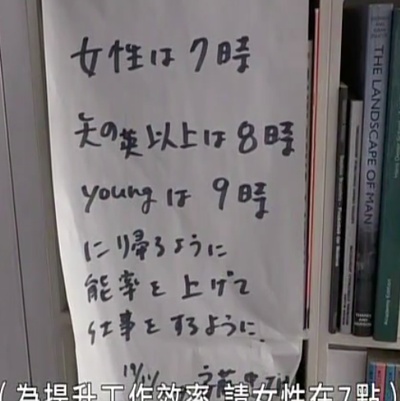 女性は7時
矢の英以上は8時
youngは9時
に帰るように
能率を上げて
仕事をするように
12/14
（為提升工作效率 請女性在7點）
THE LANDSCAPE OF MAN